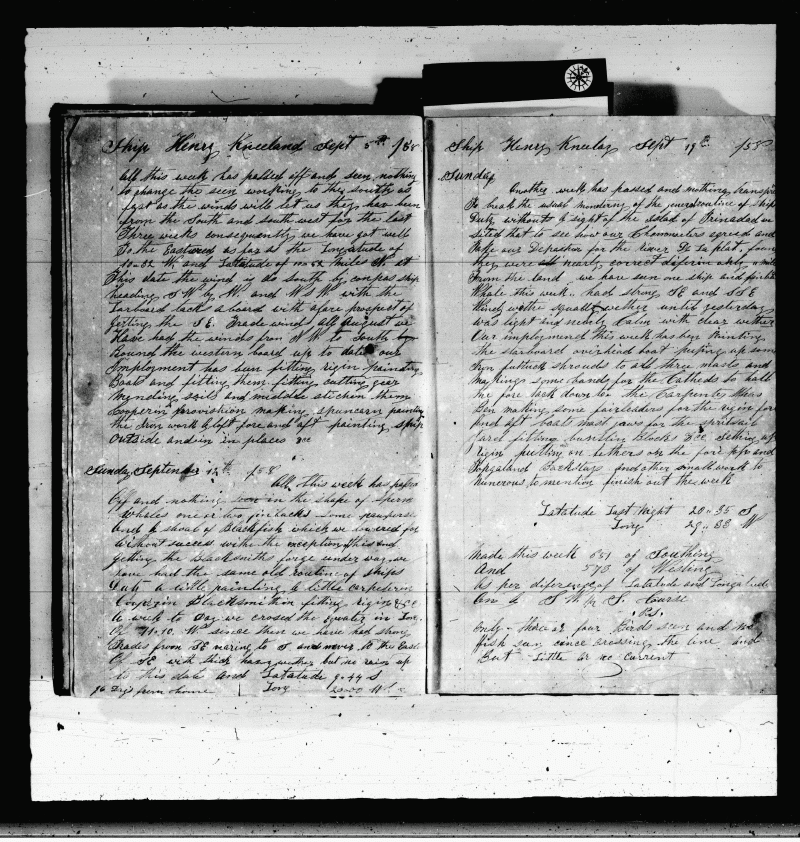 Ship Henry Kneeland Sept 5th /58
All this week has passed off and seen nothing
to change the seen working to the south as
fast as the winds will let us they has been
from the South and southwest for the last
Three weeks consequently we have got well
To the Eastward as far as the Longatude of
W and Lattatude of Miles N at
This date the wind is do South by compas ship
heading S W by W. and W S W with the
Larboard tack aboard with a fare prospect of
getting the S E. Trade wind all August we
Have had the winds from N W to South by
Round the western board up to date our
Imployment has bun fitting rigin painting
Boats and fitting them fitting cutting gear
Mending sails and middle stichen them
Cooperin provishion making spuncarn painting
the Iron work aloft fore and aft painting ship
Outside and in in places &c
Sunday September 12th /58
All this week has passed
Off and nothing in the shape of Sperm
Whales one or two finbacks some
And a shoal of Blackfish which we lowered for
Without success withe the exception of this and
getting the Blacksmiths forge under way we
have had the same old routine of ships
Duty a little painting a little carpeterin
Cooperin Blacksmithin fitting rigin &cc
A week to day we crosed the equater in Long.
Of 31.10. W since then we have had strong
Trades from SE varing to S and never to the East
Of SE with thick hazy wether but no rain up
to this date and Latatude 9.44 S
96 Days from home Long W
Ship Henry Knelan Sept 19th /58
Sunday
Another week has passed and nothing transpired
To break the usual monotony of the general routine of ships
Duty without a sight of the Island of Trinadad we
Sited that to see how our Chronometers agreed and
Take our Departur for the river De La plat, found
they were nearly correct diferin only miles
From the land we have seen one ship and finback
Whale this week. had strong SE and SSE
Winds withe squally wether until yesterday
Was light and nearly Calm with clear wether
Our imployment this week has ben Painting
the starboard overhead boat puting up some
Iron futtuck shrouds to all three masts and
Making some bands for the Catheds to hall
the fore tack down to the Carpenty has
Ben making some fairleaders for the rigin fore
And aft boats mast jaws for the spritsail
Yard fitting buntlin Blocks &cc Setting up
rigin putting on lethers on the fore top and
Topgaland Backstays and other small work to
Numerous to mention finish out the week
Latatude Last Night 20.35 S
Long 29.33 W
Made this week 651 of Southing
And 573 of Westing
As per diference of Latatude and Longatude
On a S W by S. Course
P.S.
Only three or four Birds seen and no
fish sun since crossing the line and
But little or no Current